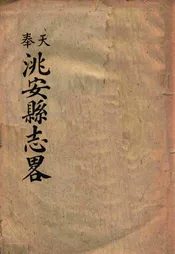 奉天
洮安縣志畧